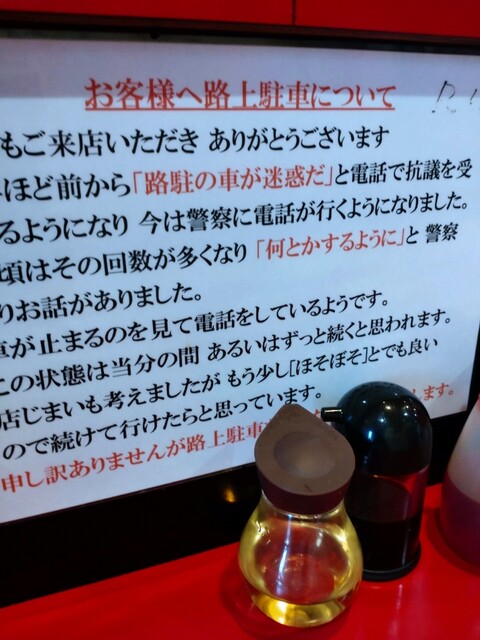 お客様へ路上駐車について
もご来店いただき ありがとうございます
ほど前から「路駐の車が迷惑だ」と電話で抗議を受
るようになり 今は警察に電話が行くようになりました。
頃はその回数が多くなり「何とかするように」と 警察
りお話がありました。
車が止まるのを見て電話をしているようです。
この状態は当分の間 あるいはずっと続くと思われます。
店じまいも考えましたが もう少し[ほそぼそ]とでも良い
ので続けて行けたらと思っています。
申し訳ありませんが路上駐車 します。